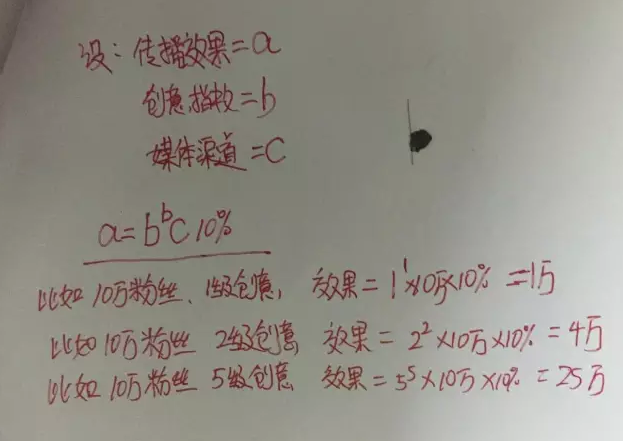 设：传播效果=a
创意指数=b
媒体渠道=C
a=bᵇC10%
比如10万粉丝、1级创意，效果=1¹×10万×10%=1万
比如10万粉丝 2级创意 效果=2²×10万×10%=4万
比如10万粉丝 5级创意 效果=5⁵×10万×10%=25万